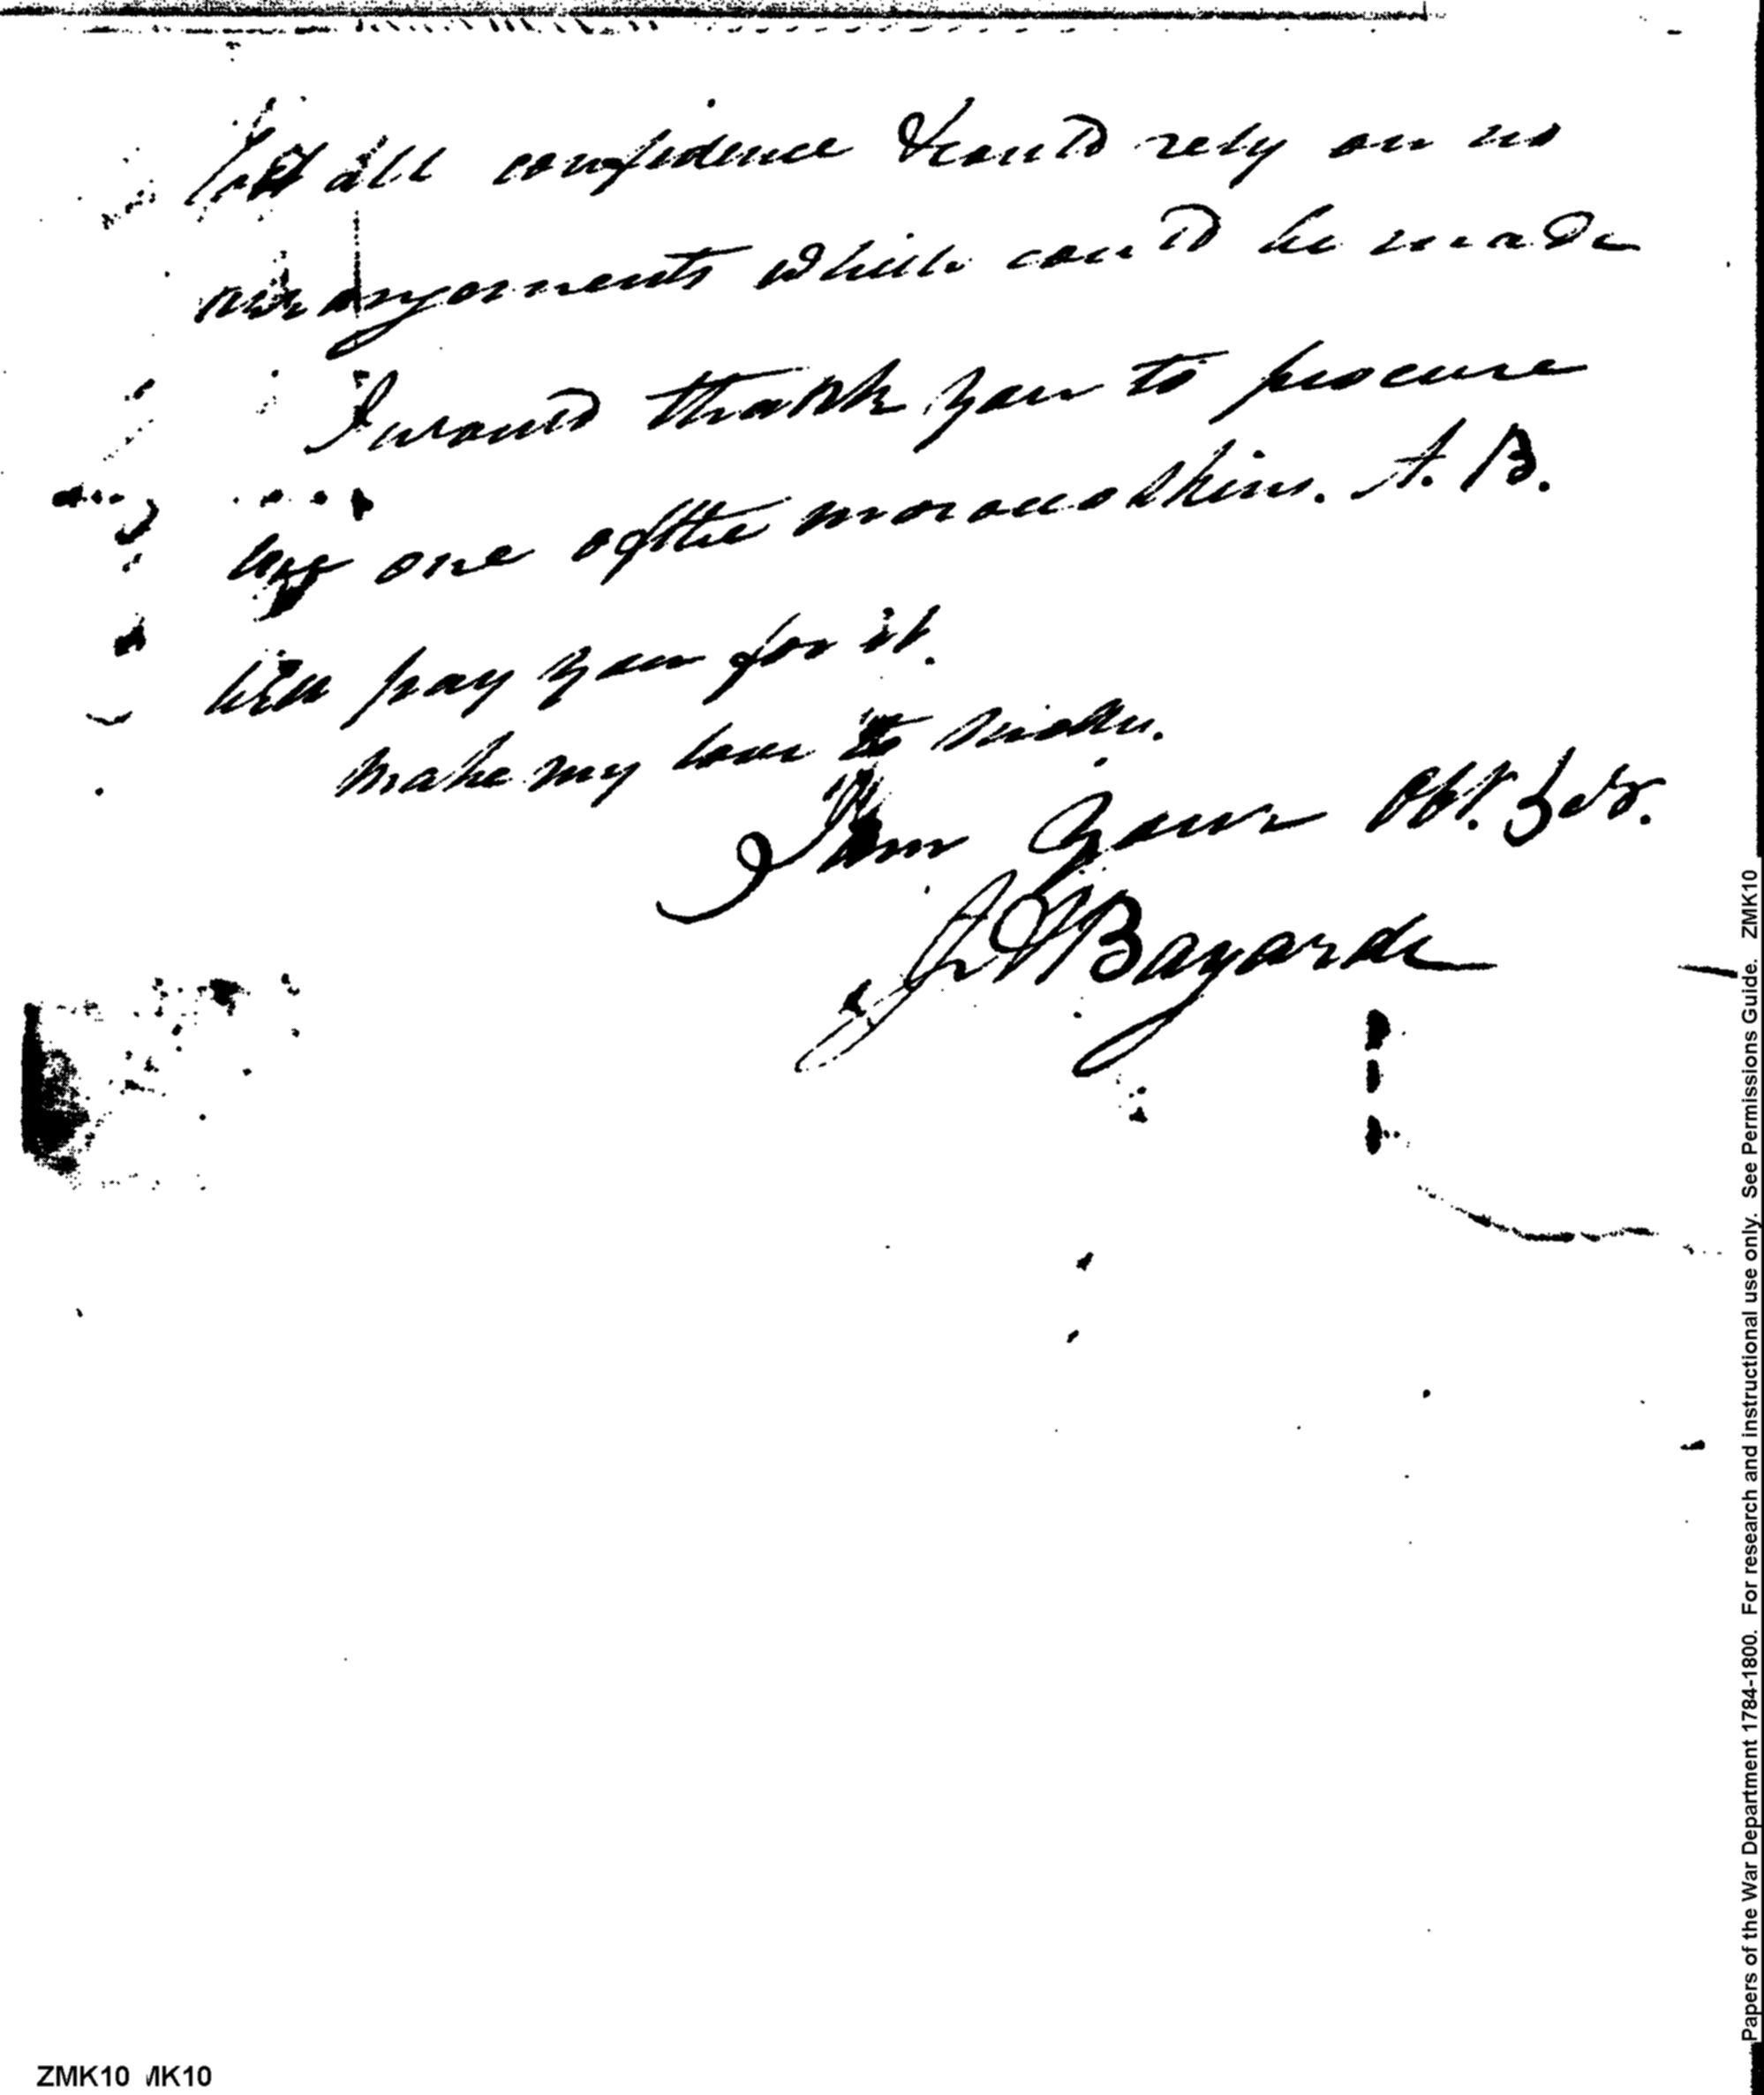 lost all confidence & could rely on no
arrangements which could be made
I would thank you to procure
one of the skins. A. B.
will pay you for it.
Make my love to
I am Your Obt. Set.
J H Bayard
Papers of the War Department 1784-1800. For research and instructional use only. See Permissions Guide. ZMK10
ZMK10 MK10